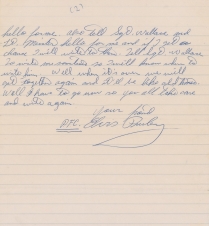 (2)
hello for me. also tell Sgt Wallace and
Lt. hello for me and if I get a
chance I will write to him. Tell Sgt Wallace
to write me sometime so I will know where to
write him. Well when it's over we will
get together again and it'll be like old times.
Well I have to go now so you all take care
and write again
Your friend
PFC. Elvis Presley